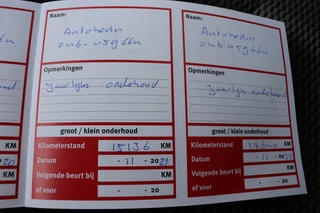 Naam:
Autohedin
Opmerkingen
Jaarlijks onderhoud
groot / klein onderhoud
Kilometerstand 15136 KM
Datum - 11 - 2021
Volgende beurt bij KM
of voor - - 20
Naam:
Autohedin
Opmerkingen
Jaarlijks onderhoud
groot / klein onderhoud
Kilometerstand 17640 KM
Datum - 11 - 2022
Volgende beurt bij KM
of voor - - 20
KM
KM